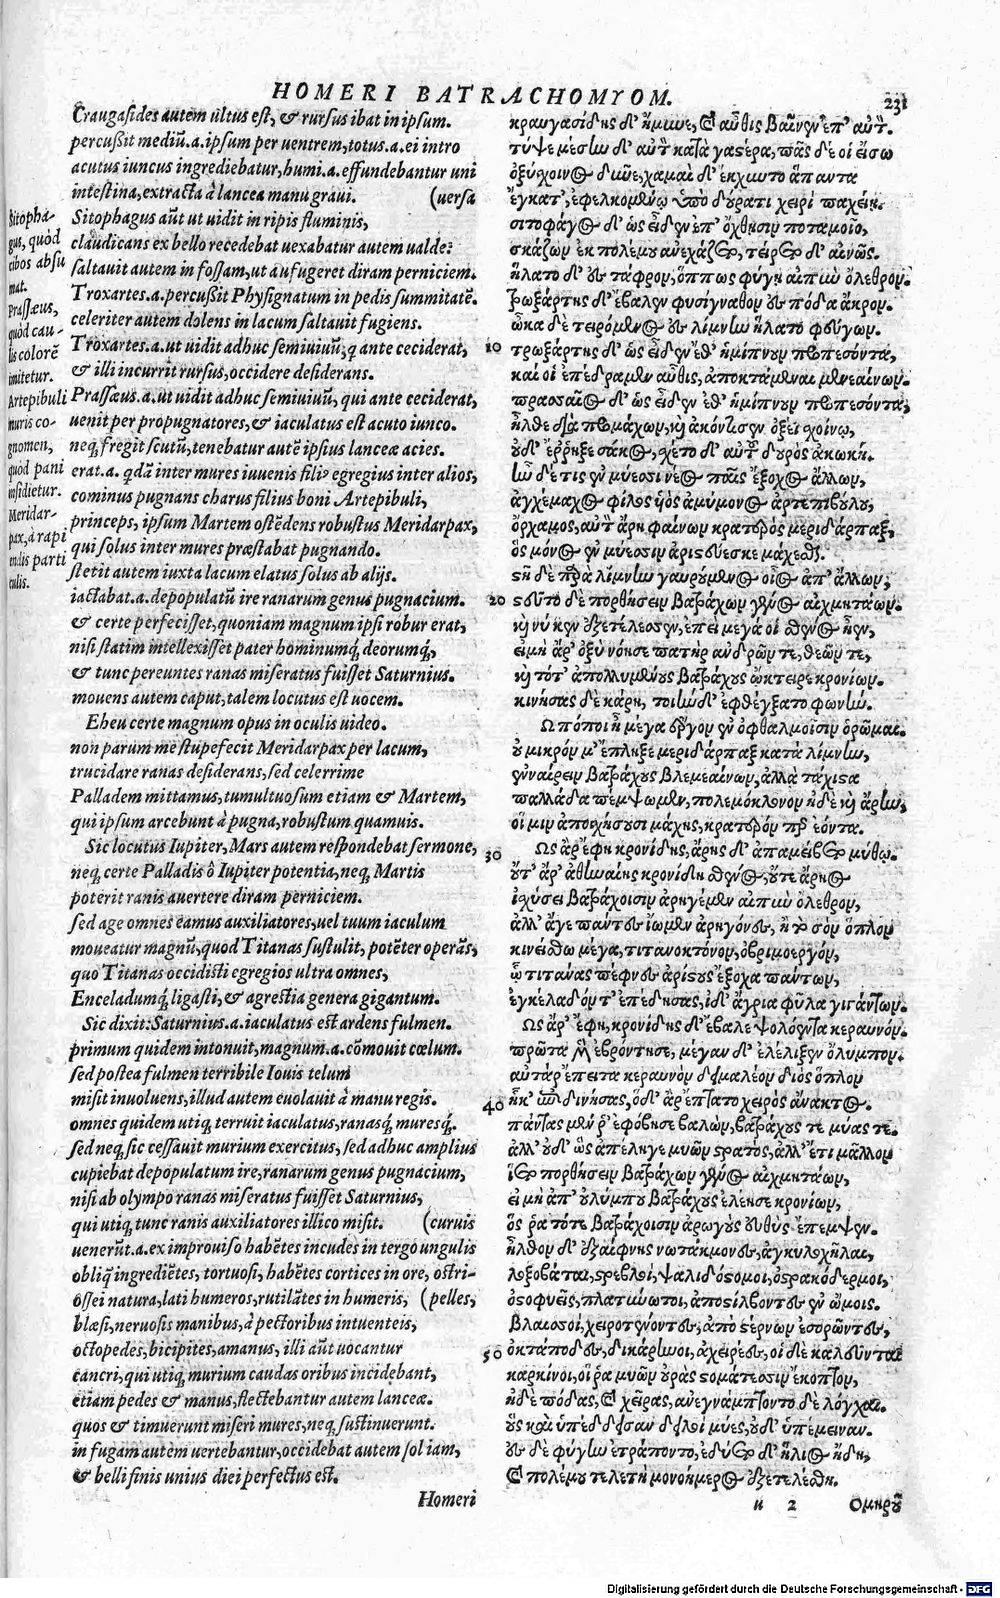 HOMERI BATRACHOMYOM. 231
Craugasides autem ultus est, & rursus ibat in ipsum.
percußit mediũ.a.ipsum per uentrem, totus.a.ei intro
acutus iuncus ingrediebatur, humi.a.effundebantur uni
intestina, extracta à lancea manu graui. (uersa
Sitophagus aũt ut uidit in ripis fluminis,
claudicans ex bello recedebat uexabatur autem ualde:
saltauit autem in fossam, ut aufugeret diram perniciem.
Troxartes.a.percußit Physignatum in pedis summitatẽ.
celeriter autem dolens in lacum saltauit fugiens.
Troxartes.a.ut uidit adhuc semiuiuũ, q ante ceciderat,
& illi incurrit rursus, occidere desiderans.
Prassæus.a.ut uidit adhuc semiuiuũ, qui ante ceciderat,
uenit per propugnatores, & iaculatus est acuto iunco.
neq; fregit scutũ, tenebatur autẽ ipsius lanceæ acies.
erat.a. qdã inter mures iuuenis filiꝰ egregius inter alios,
cominus pugnans charus filius boni Artepibuli,
princeps, ipsum Martem ostẽdens robustus Meridarpax,
qui solus inter mures præstabat pugnando.
stetit autem iuxta lacum elatus solus ab alijs.
iactabat.a.depopulatũ ire ranarum genus pugnacium.
& certe perfecisset, quoniam magnum ipsi robur erat,
nisi statim intellexisset pater hominumq; deorumq;,
& tunc pereuntes ranas miseratus fuisset Saturnius.
mouens autem caput, talem locutus est uocem.
Eheu certe magnum opus in oculis uideo.
non parum me stupefecit Meridarpax per lacum,
trucidare ranas desiderans, sed celerrime
Palladem mittamus, tumultuosum etiam & Martem,
qui ipsum arcebunt à pugna, robustum quamuis.
Sic locutus Iupiter, Mars autem respondebat sermone,
neq; certe Palladis ô Iupiter potentia, neq; Martis
poterit ranis auertere diram perniciem.
sed age omnes eamus auxiliatores, uel tuum iaculum
moueatur magnũ, quod Titanas sustulit, potẽter operãs,
quo Titanas occidisti egregios ultra omnes,
Enceladumq; ligasti, & agrestia genera gigantum.
Sic dixit: Saturnius.a.iaculatus est ardens fulmen.
primum quidem intonuit, magnum.a.cõmouit cœlum.
sed postea fulmen terribile Iouis telum
misit inuoluens, illud autem euolauit à manu regis.
omnes quidem utiq; terruit iaculatus, ranasq; muresq;.
sed neq; sic cessauit murium exercitus, sed adhuc amplius
cupiebat depopulatum ire, ranarum genus pugnacium,
nisi ab olympo ranas miseratus fuisset Saturnius,
qui utiq; tunc ranis auxiliatores illico misit. (curuis
uenerũt.a.ex improuiso habẽtes incudes in tergo ungulis
obliq̃ ingrediẽtes, tortuosi, habẽtes cortices in ore, ostri-
ossei natura, lati humeros, rutilãtes in humeris, (pelles,
blæsi, neruosis manibus, à pectoribus intuenteis,
octopedes, bicipites, amanus, illi aũt uocantur
cancri, qui utiq; murium caudas oribus incidebant,
etiam pedes & manus, flectebantur autem lanceæ.
quos & timuerunt miseri mures, neq; sustinuerunt.
in fugam autem uertebantur, occidebat autem sol iam,
& belli finis unius diei perfectus est.
Homeri
Sitopha-
gus, quòd
cibos absu
mat.
Prassæus,
quòd cau-
lis colorẽ
imitetur.
Artepibuli
muris co-
gnomen,
quòd pani
insidietur.
Meridar-
pax, à rapi
endis parti
culis.
κραυγασίδης δ' ἤμυνε, καὶ αὖθις βαῖνεν ἐπ' αὐτόν.
τύψε μέσην δ' αὐτὸν κατὰ γαστέρα, πᾶς δέ οἱ εἴσω
ὀξύχοινος δῦνε, χαμαὶ δ' ἔκχυντο ἅπαντα
ἔγκατ', ἐφελκομένῳ ὑπὸ δούρατι χειρὶ παχείῃ.
σιτοφάγος δ' ὡς εἶδεν ἐπ' ὄχθῃσιν ποταμοῖο,
σκάζων ἐκ πολέμου ἀνεχάζετο, τείρετο δ' αἰνῶς.
ἥλατο δ' ἐς τάφρον, ὅππως φύγῃ αἰπὺν ὄλεθρον.
τρωξάρτης δ' ἔβαλεν φυσίγναθον ἐς πόδα ἄκρον.
ὦκα δὲ τειρόμενος ἐς λίμνην ἥλατο φεύγων.
10 τρωξάρτης δ' ὡς εἶδεν ἔθ' ἡμίπνουν προπεσόντα,
καί οἱ ἐπέδραμεν αὖθις, ἀποκτάμεναι μενεαίνων.
πρασσαῖος δ' ὡς εἶδεν ἔθ' ἡμίπνουν προπεσόντα,
ἦλθε διὰ προμάχων, καὶ ἀκόντισεν ὀξέϊ χοίνῳ,
οὐδ' ἔρρηξε σάκος, σχέτο δ' αὐτοῦ δουρὸς ἀκωκή.
ἦν δέ τις ἐν μύεσσι νέος παῖς ἔξοχος ἄλλων,
ἀγχέμαχος φίλος υἱὸς ἀμύμονος ἀρτεπιβούλου,
ὄρχαμος, αὐτὸν ἄρη φαίνων κρατερὸς μεριδάρπαξ,
ὃς μόνος ἐν μύεσσιν ἀριστεύεσκε μάχεσθαι.
στῆ δὲ παρὰ λίμνην γαυρούμενος οἶος ἀπ' ἄλλων,
20 στεῦτο δὲ πορθήσειν βατράχων γένος αἰχμητάων.
καὶ νύ κεν ἐξετέλεσεν, ἐπεὶ μέγα οἱ σθένος ἦεν,
εἰ μὴ ἄρ' ὀξὺ νόησε πατὴρ ἀνδρῶν τε, θεῶν τε,
καὶ τότ' ἀπολλυμένους βατράχους ᾤκτειρε κρονίων.
κινήσας δὲ κάρη, τοιὴν δ' ἐφθέγξατο φωνήν.
Ω πόποι ἦ μέγα ἔργον ἐν ὀφθαλμοῖσιν ὁρῶμαι.
οὐ μικρόν μ' ἔπληξε μεριδάρπαξ κατὰ λίμνην,
ἐναίρειν βατράχους βλεμεαίνων, ἀλλὰ τάχιστα
παλλάδα πέμψωμεν, πολεμόκλονον ἠδὲ καὶ ἄρην,
οἵ μιν ἀποσχήσουσι μάχης, κρατερόν περ ἐόντα.
30 Ως ἄρ' ἔφη κρονίδης, ἄρης δ' ἀπαμείβετο μύθῳ.
οὔτ' ἄρ' ἀθηναίης κρονίδη σθένος, οὔτε ἄρηος
ἰσχύσει βατράχοισιν ἀρηγέμεν αἰπὺν ὄλεθρον,
ἀλλ' ἄγε πάντες ἴωμεν ἀρηγόνες, ἢ τὸ σὸν ὅπλον
κινείσθω μέγα, τιτανοκτόνον, ὀβριμοεργόν,
ᾧ τιτάνας πέφνες ἀρίστους ἔξοχα πάντων,
ἐγκέλαδόν τ' ἐπέδησας, ἰδ' ἄγρια φῦλα γιγάντων.
Ως ἄρ' ἔφη, κρονίδης δ' ἔβαλε ψολόεντα κεραυνόν.
πρῶτα μὲν ἐβρόντησε, μέγαν δ' ἐλέλιξεν ὄλυμπον.
αὐτὰρ ἔπειτα κεραυνὸν δειμαλέον διὸς ὅπλον
40 ἧκ' ἐπιδινήσας, ὁ δ' ἄρ' ἔπτατο χειρὸς ἄνακτος.
πάντας μέν ῥ' ἐφόβησε βαλών, βατράχους τε μύας τε.
ἀλλ' οὐδ' ὣς ἀπέληγε μυῶν στρατός, ἀλλ' ἔτι μᾶλλον
ἵετο πορθήσειν βατράχων γένος αἰχμητάων,
εἰ μὴ ἀπ' οὐλύμπου βατράχους ἐλέησε κρονίων,
ὅς ῥα τότε βατράχοισιν ἀρωγοὺς εὐθὺς ἔπεμψεν.
ἦλθον δ' ἐξαίφνης νωτάκμονες, ἀγκυλοχῆλαι,
λοξοβάται, στρεβλοί, ψαλιδόστομοι, ὀστρακόδερμοι,
ὀστοφυεῖς, πλατύνωτοι, ἀποστίλβοντες ἐν ὤμοις.
βλαισοί, χειροτένοντες, ἀπὸ στέρνων ἐσορῶντες,
50 ὀκτάποδες, δικάρηνοι, ἀχειρέες, οἱ δὲ καλεῦνται
καρκίνοι, οἵ ῥα μυῶν οὐρὰς στομάτεσσιν ἔκοπτον,
ἠδὲ πόδας, καὶ χεῖρας, ἀνεγνάμπτοντο δὲ λόγχαι.
οὓς καὶ ὑπέδδεισαν δειλοὶ μύες, οὐδ' ὑπέμειναν.
ἐς δὲ φύγην ἐτράποντο, ἐδύετο δ' ἥλιος ἤδη,
καὶ πολέμου τελετὴ μονοήμερος ἐξετελέσθη.
n 2 Ομηρου
Digitalisierung gefördert durch die Deutsche Forschungsgemeinschaft - DFG